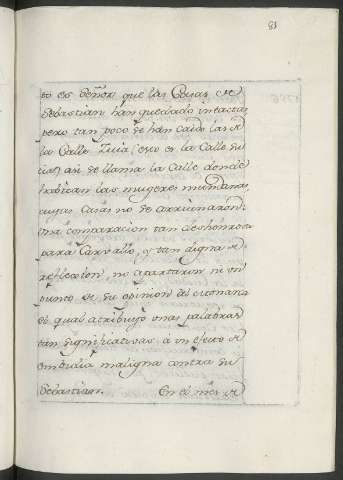 81
to es Señor que las Casas de
Sebastian han quedado intactas
pero tan poco se han caido las de
la Calle Zuia (esto es la Calle su
cia) asi se llama la Calle donde
habitan las mugeres mundanas,
cuyas Casas no se arruinaron.
Una comparacion tan deshonrosa
para Carvallo, y tan digna de
reflexion, no apartaron ni un
punto de su opinion al
el qual atribuyó unas palabras
tan significativas, á un efecto de
embidia maligna contra su
Sebastian. En el mes de